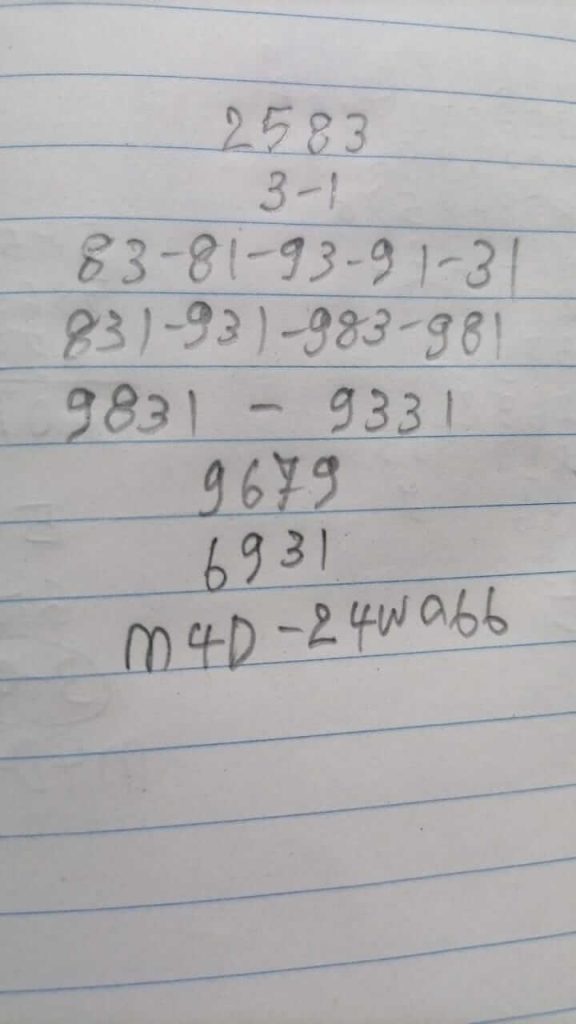 2583
3-1
83-81-93-91-31
831-931-983-981
9831 - 9331
9679
6931
M4D-24Wa66